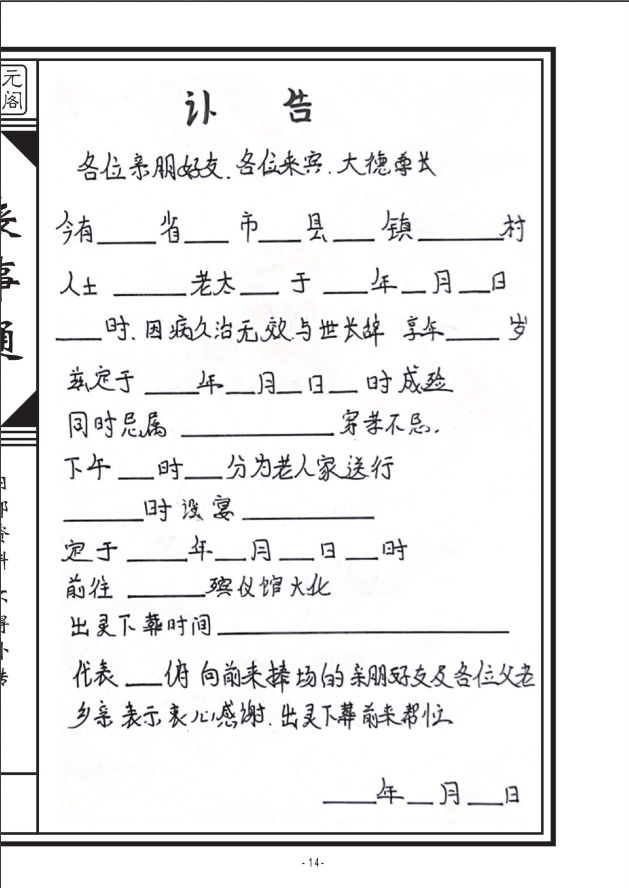 元阁
事
讣 告
各位亲朋好友.各位来宾.大德尊长
今有____省___市___县___镇______村
人士_____老太___于___年__月__日
___时.因病久治无效.与世长辞 享年____岁
兹定于____年__月__日__时成殓
同时忌属___________穿孝不忌.
下午__时__分为老人家送行
______时设宴_________
定于____年__月__日__时
前往_____殡仪馆火化
出灵下葬时间____________________
代表__俯向前来捧场的亲朋好友及各位父老
乡亲表示衷心感谢.出灵下葬前来帮忙
____年__月__日
-14-